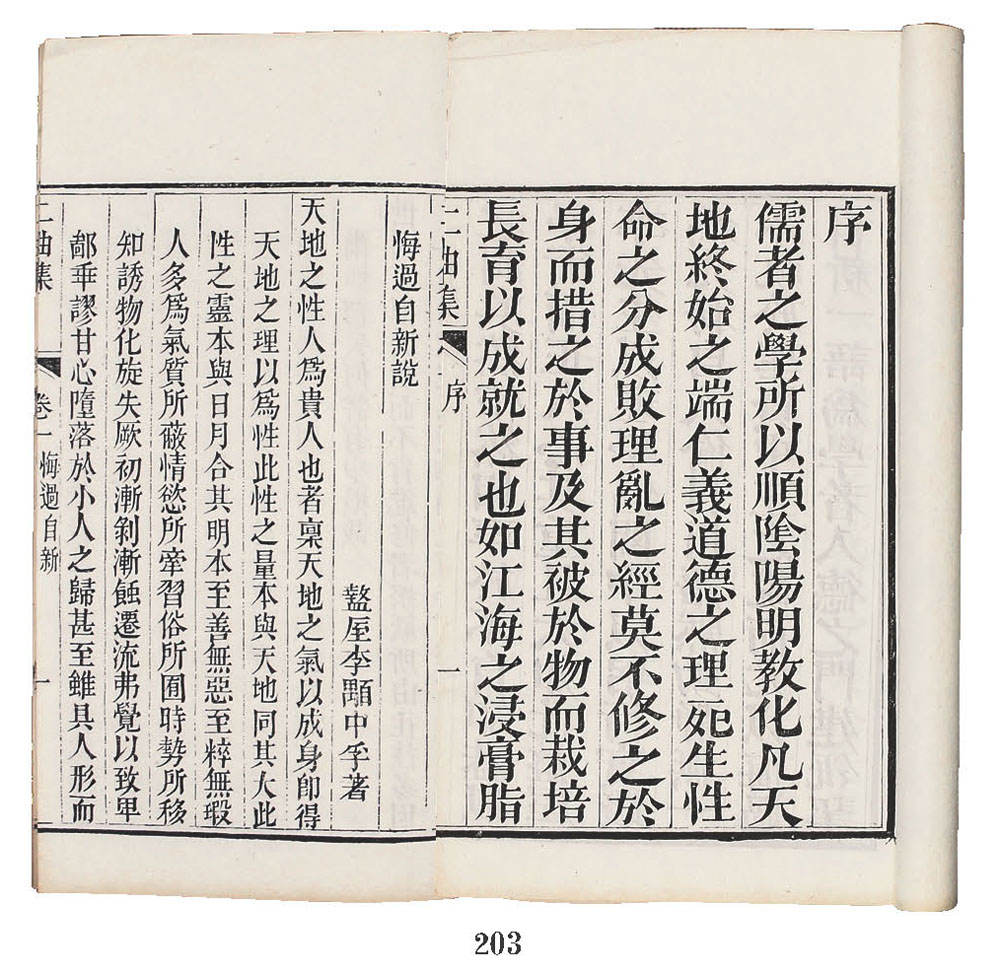 序
儒者之學所以順陰陽明教化凡天
地終始之端仁義道德之理死生性
命之分成敗理亂之經莫不修之於
身而措之於事及其被於物而栽培
長育以成就之也如江海之浸膏脂
二曲集 序 一
悔過自新說
盩厔李顒中孚著
天地之性人爲貴人也者稟天地之氣以成身卽得
天地之理以爲性此性之量本與天地同其大此
性之靈本與日月合其明本至善無惡至粹無瑕
人多爲氣質所蔽情慾所牽習俗所囿時勢所移
知誘物化旋失厥初漸剝漸蝕遷流弗覺以致卑
鄙乖謬甘心墮落於小人之歸甚至雖具人形而
二曲集 卷一 悔過自新 一
203